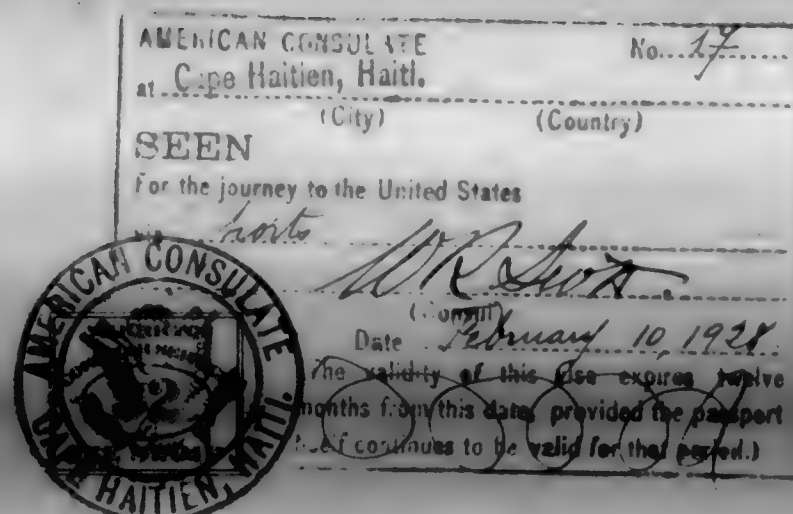 AMERICAN CONSULATE No. 17
at Cape Haitien, Haiti.
(City) (Country)
SEEN
For the journey to the United States
W R Scott.
(Consul)
Date February 10, 1928
The validity of this visa expires twelve
months from this date, provided the passport
itself continues to be valid for that period.)
AMERICAN CONSULATE
CAPE HAITIEN, HAITI.